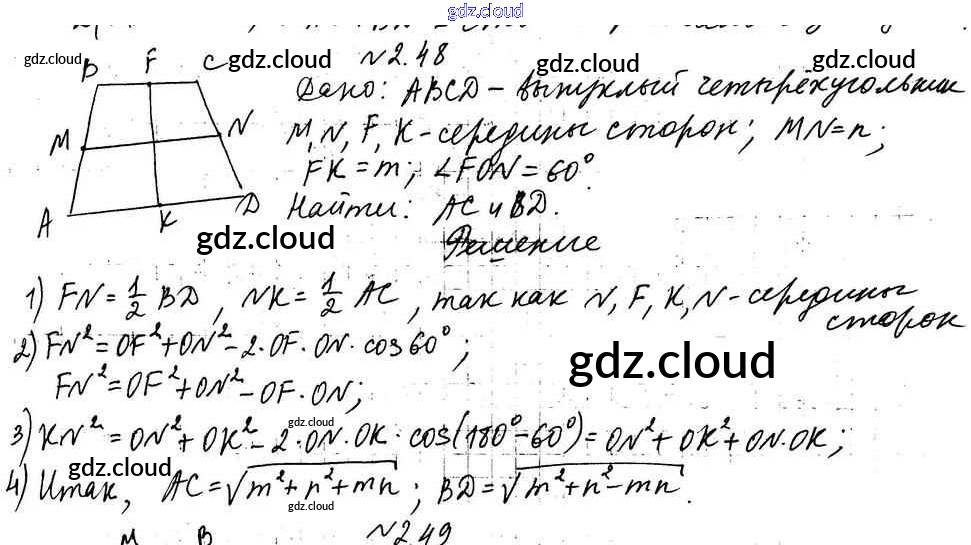 gdz.cloud
№2.48
gdz.cloud gdz.cloud gdz.cloud
B F C
M N
A K D
Дано: ABCD – выпуклый четырёхугольник
M, N, F, K – середины сторон; MN = n;
FK = m; ∠FON = 60°.
Найти: AC и BD.
gdz.cloud
Решение
1) FN = 1/2 BD, NK = 1/2 AC, так как N, F, K, N – середины
сторон
2) FN² = OF² + ON² – 2·OF·ON·cos60°;
gdz.cloud
FN² = OF² + ON² – OF·ON;
gdz.cloud
3) KN² = ON² + OK² – 2·ON·OK·cos(180°–60°) = ON² + OK² + ON·OK;
gdz.cloud
4) Итак, AC = √(m² + n² + mn); BD = √(m² + n² – mn).
gdz.cloud
M B №2.49